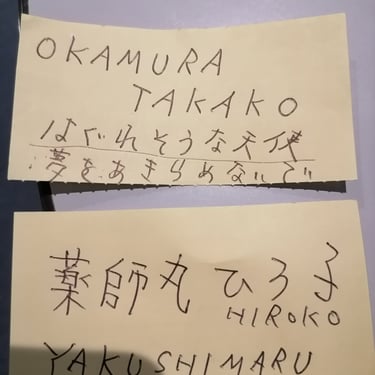 OKAMURA
TAKAKO
はぐれそうな天使
夢をあきらめないで
薬師丸 ひろ子
HIROKO
YAKUSHIMARU